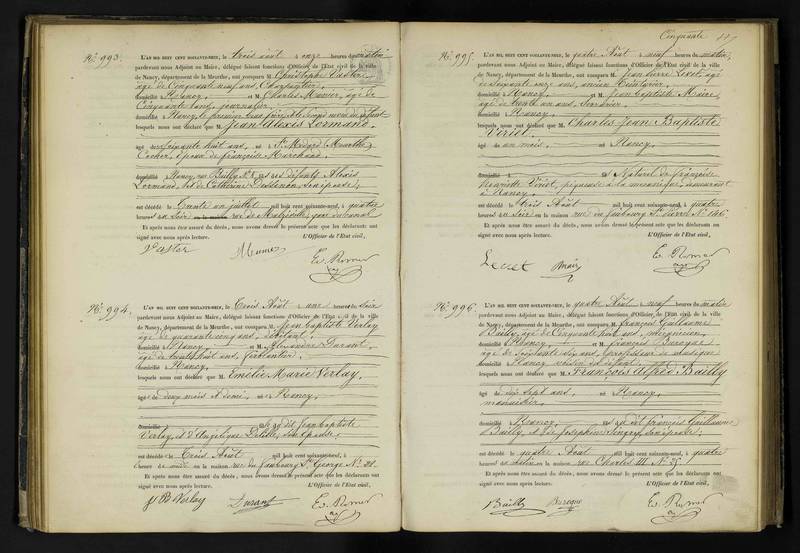 No. 993.
L'AN MIL HUIT CENT SOIXANTE-NEUF, le trois août à onze heures du matin
pardevant nous Adjoint au Maire, délégué faisant fonctions d'Officier de l'État civil de la ville
de Nancy, département de la Meurthe, ont comparu M. Christophe Vaster
âgé de Cinquante neuf ans, Charpentier,
domicilié à Nancy, et M. Charles Munier, âgé de
Cinquante ans, journalier,
domicilié à Nancy, le premier beau frère et le second voisin du défunt
lesquels nous ont déclaré que M. Jean Alexis Lormand,
âgé de soixante huit ans, né à St Médard (Meurthe)
Cocher, époux de françoise Marchand,
domicilié à Nancy, rue Bailly No 8, fils des défunts Alexis
Lormand, et de Catherine son épouse,
est décédé le trente un juillet mil huit cent soixante-neuf, à quatre
heures du soir en la maison rue de Malzéville
Et après nous être assuré du décès, nous avons dressé le présent acte que les déclarants ont
signé avec nous après lecture. L'Officier de l'État civil,
Vaster Munier Ed. Romer
No. 994.
L'AN MIL HUIT CENT SOIXANTE-NEUF, le Trois Août à une heure du soir
pardevant nous Adjoint au Maire, délégué faisant fonctions d'Officier de l'État civil de la ville
de Nancy, département de la Meurthe, ont comparu M. Jean baptiste Verlay
âgé de quarante cinq ans, débitant,
domicilié à Nancy, et M. Alexandre Durant,
âgé de trente huit ans, ferblantier,
domicilié à Nancy,
lesquels nous ont déclaré que M. Emélie Marie Verlay,
âgé de deux mois et demi, né à Nancy,
domicilié fille du dit Jean baptiste
Verlay, et d'Angélique Delille, son épouse,
est décédé le Trois Août mil huit cent soixante-neuf, à
heure en la maison rue du faubourg St George No 21.
Et après nous être assuré du décès, nous avons dressé le présent acte que les déclarants ont
signé avec nous après lecture. L'Officier de l'État civil,
J B Verlay Durant Ed. Romer
Cinquante
No. 995.
L'AN MIL HUIT CENT SOIXANTE-NEUF, le quatre Août à neuf heures du matin,
pardevant nous Adjoint au Maire, délégué faisant fonctions d'Officier de l'État civil de la ville
de Nancy, département de la Meurthe, ont comparu M. Jean Pierre âgé
de soixante onze ans, ancien
domicilié à Nancy, et M. Jean Baptiste
âgé de trente ans,
domicilié à Nancy,
lesquels nous ont déclaré que M. Charles Jean Baptiste
Voriot,
âgé de un mois, né à Nancy,
domicilié à fils Naturel de françoise
Henriette Voriot, demeurant
à Nancy,
est décédé le trois Août mil huit cent soixante-neuf, à quatre
heures du soir en la maison rue du faubourg St Pierre No 146.
Et après nous être assuré du décès, nous avons dressé le présent acte que les déclarants ont
signé avec nous après lecture. L'Officier de l'État civil,
Ed. Romer
No. 996.
L'AN MIL HUIT CENT SOIXANTE-NEUF, le quatre Août à neuf heures du matin
pardevant nous Adjoint au Maire, délégué faisant fonctions d'Officier de l'État civil de la ville
de Nancy, département de la Meurthe, ont comparu M. françois Guillaume
Bailly, âgé de Cinquante huit ans,
domicilié à Nancy, et M. françois Baroque
âgé de soixante dix ans, professeur de musique
domicilié à Nancy,
lesquels nous ont déclaré que M. François Alfred Bailly
âgé de dix sept ans, né à Nancy,
domicilié à Nancy, fils du dit françois Guillaume
Bailly, et de Joséphine son épouse,
est décédé le quatre Août mil huit cent soixante-neuf, à quatre
heures du matin en la maison rue Charles III No 25.
Et après nous être assuré du décès, nous avons dressé le présent acte que les déclarants ont
signé avec nous après lecture. L'Officier de l'État civil,
Bailly Baroque Ed. Romer